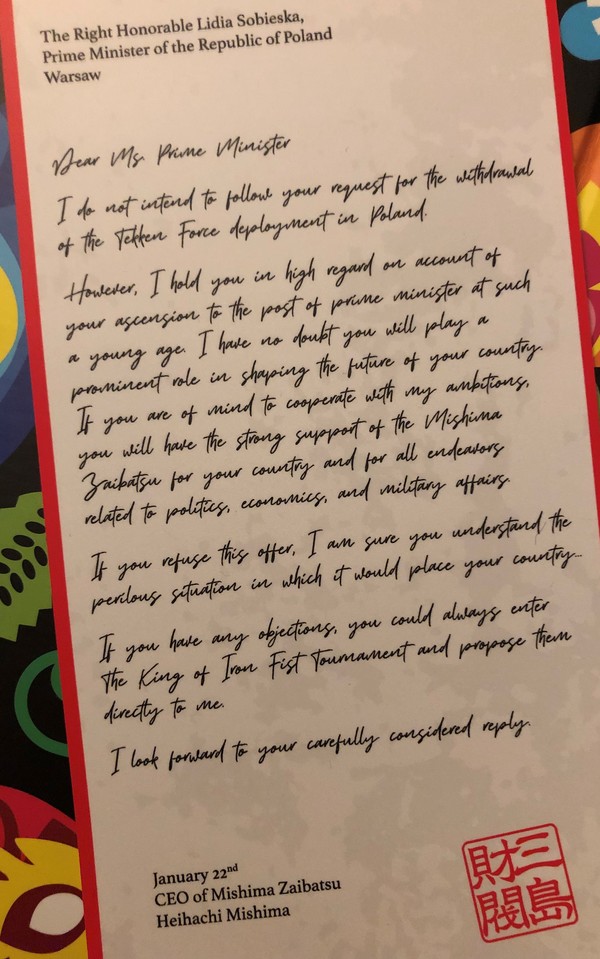 The Right Honorable Lidia Sobieska,
Prime Minister of the Republic of Poland
Warsaw
Dear Ms. Prime Minister
I do not intend to follow your request for the withdrawal
of the Tekken Force deployment in Poland.
However, I hold you in high regard on account of
your ascension to the post of prime minister at such
a young age. I have no doubt you will play a
prominent role in shaping the future of your country.
If you are of mind to cooperate with my ambitions,
you will have the strong support of the Mishima
Zaibatsu for your country and for all endeavors
related to politics, economics, and military affairs.
If you refuse this offer, I am sure you understand the
perilous situation in which it would place your country...
If you have any objections, you could always enter
The King of Iron Fist Tournament and propose them
directly to me.
I look forward to your carefully considered reply.
January 22nd
CEO of Mishima Zaibatsu
Heihachi Mishima
三島
財閥